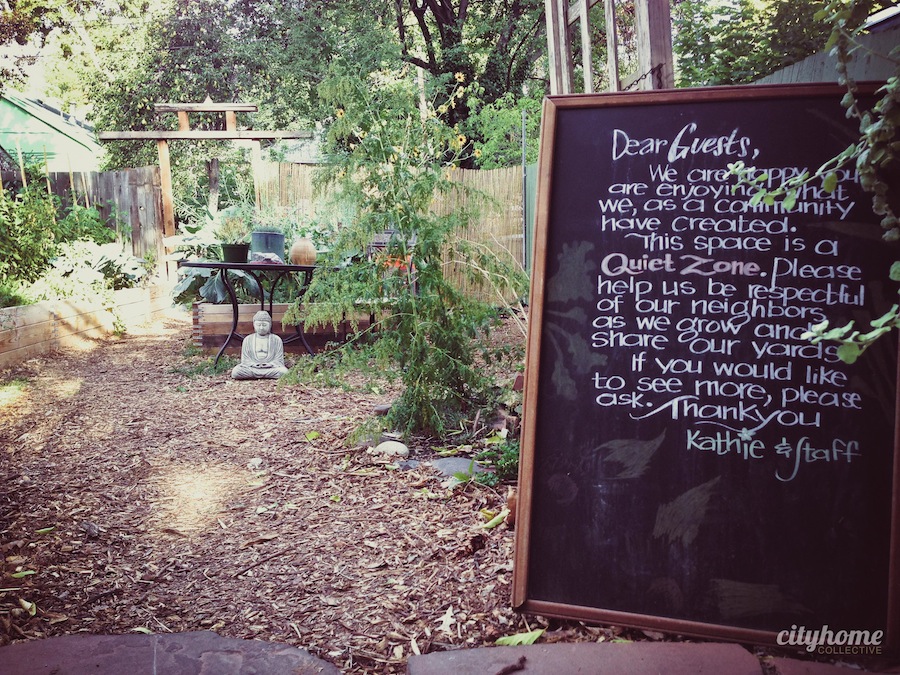 Dear Guests,
We are happy you
are enjoying what
we, as a community
have created.
This space is a
Quiet Zone. Please
help us be respectful
of our neighbors
as we grow and
share our yards.
If you would like
to see more, please
ask. Thank you
Kathie & Staff
cityhome
COLLECTIVE